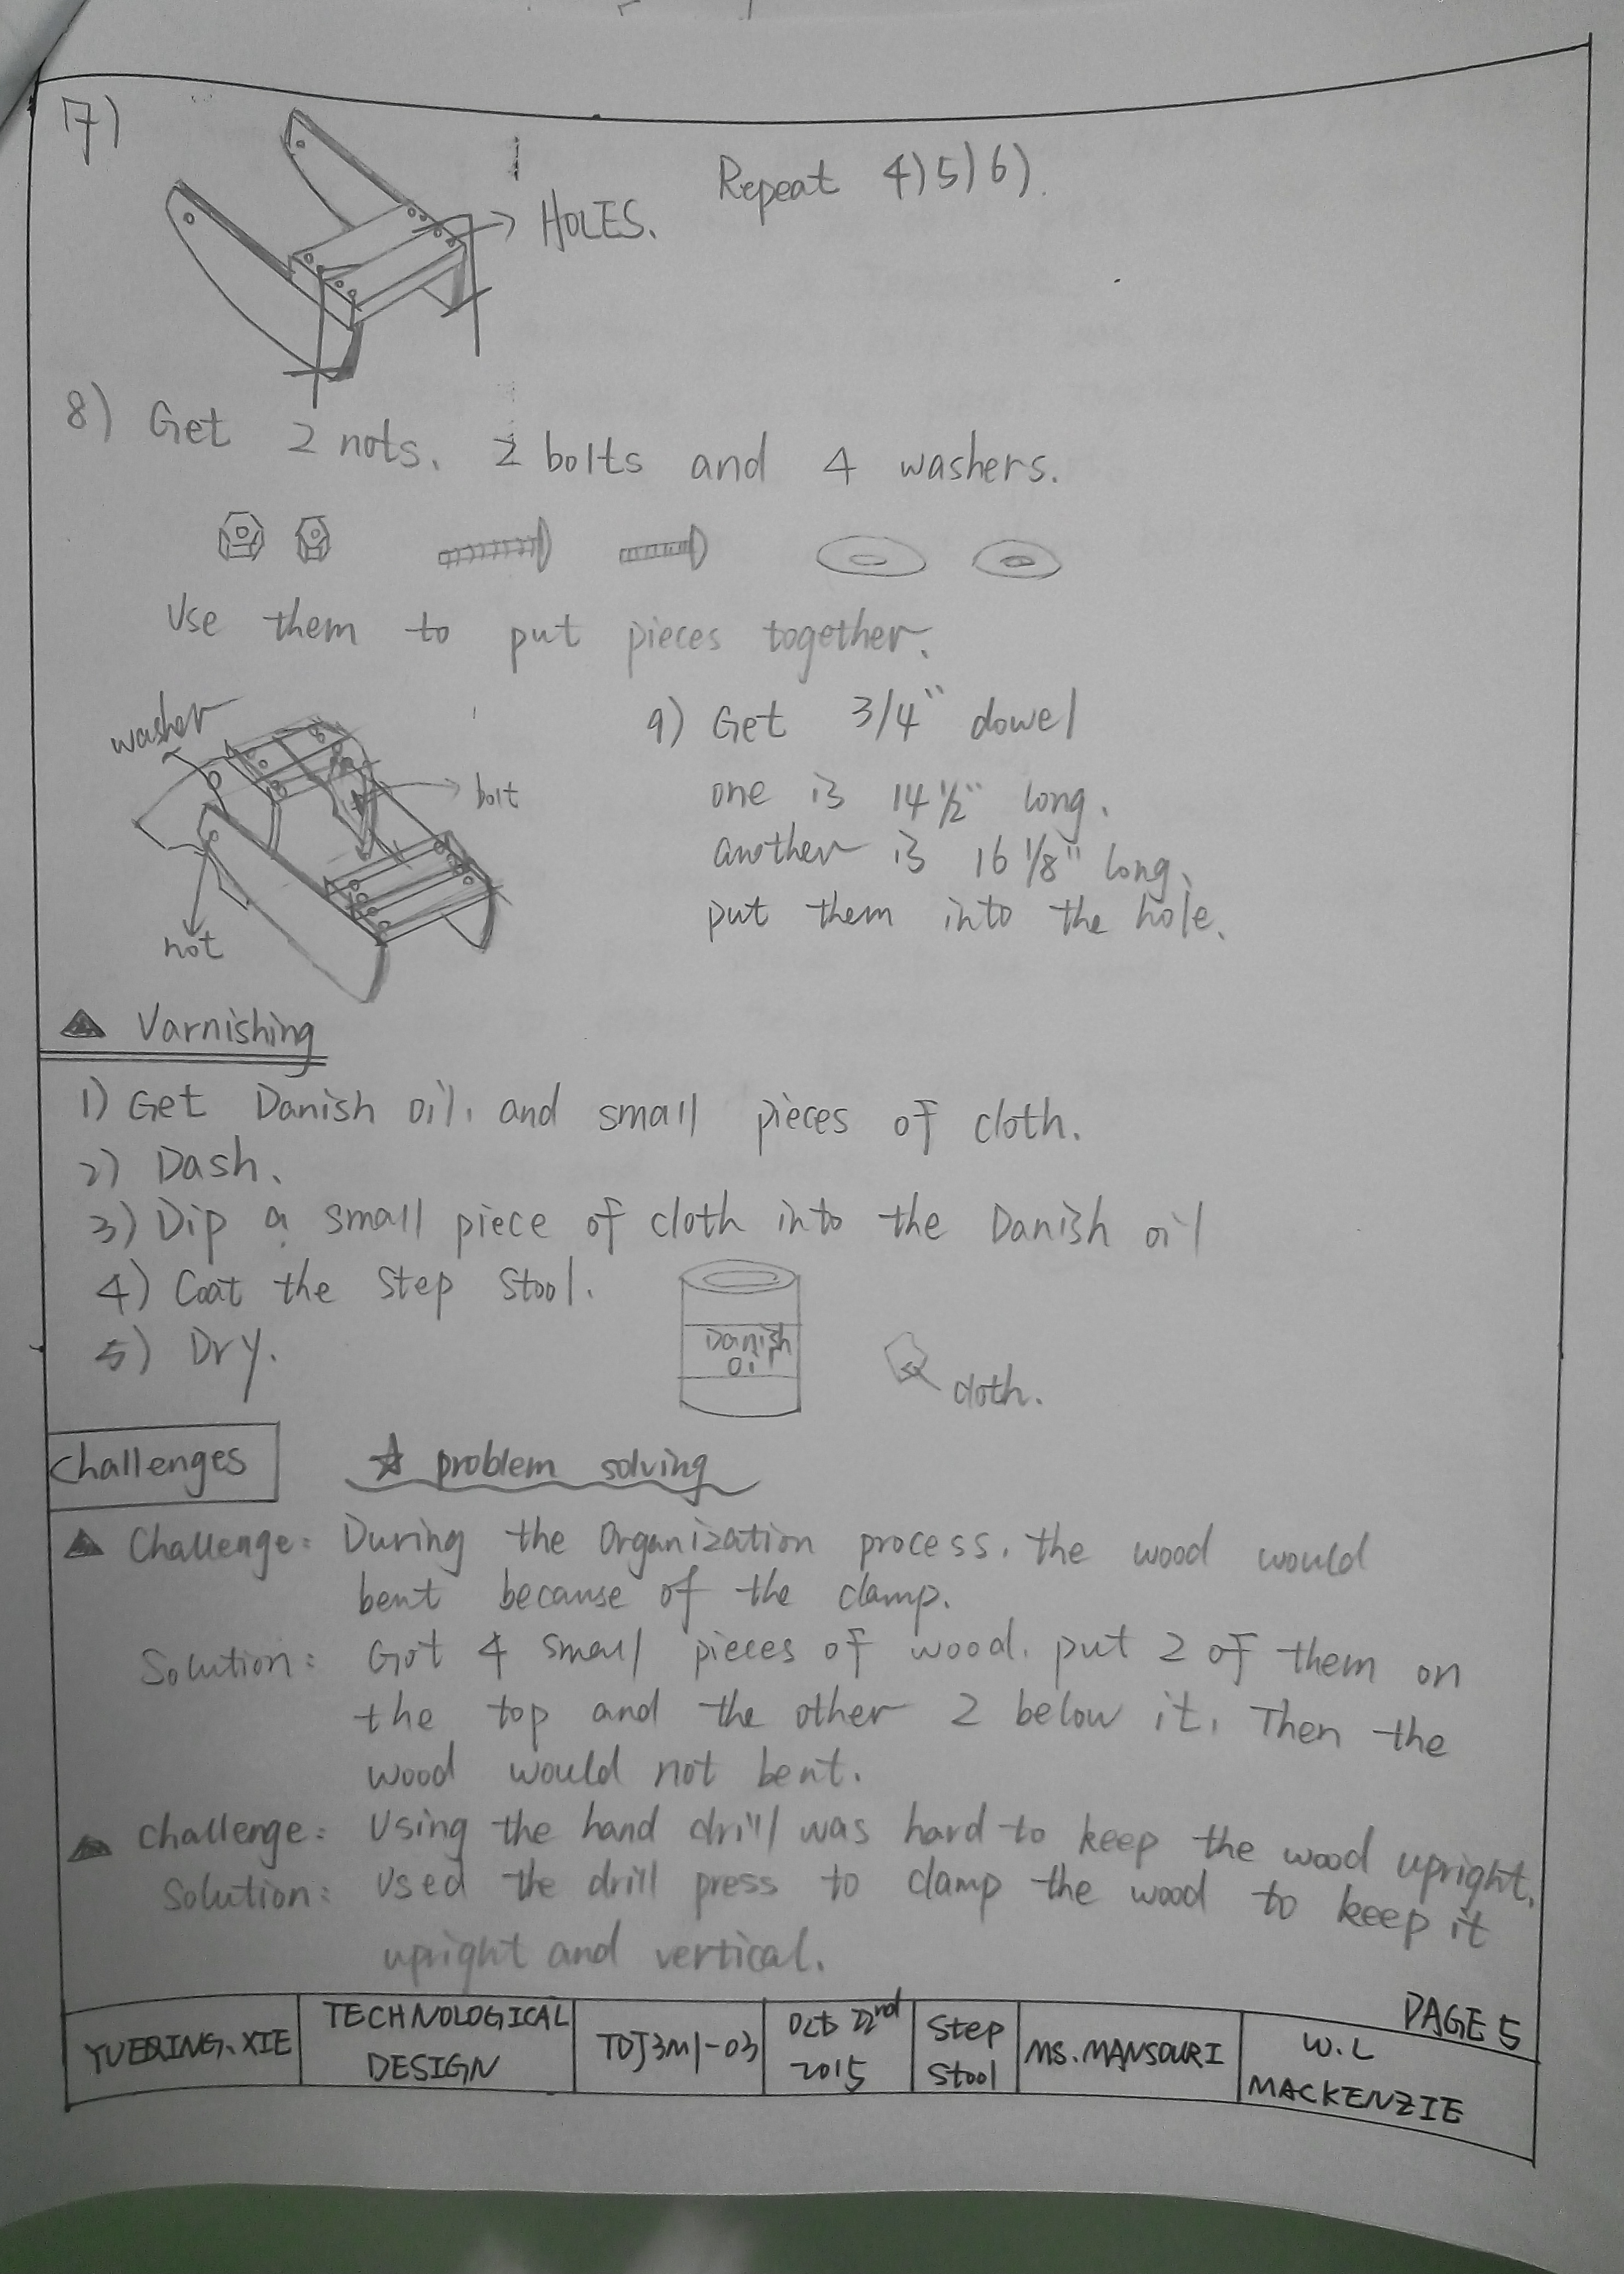 7)
HOLES.
Repeat 4)5)6).
8) Get 2 nots. 2 bolts and 4 washers.
Use them to put pieces together.
washer
bolt
not
9) Get 3/4" dowel
one is 14 1/2" long.
another is 16 1/8" long.
put them into the hole.
Varnishing
1) Get Danish oil. and small pieces of cloth.
2) Dash.
3) Dip a small piece of cloth into the Danish oil
4) Coat the Step Stool.
5) Dry.
Danish
Oil
cloth.
Challenges
☆ problem solving
Challenge: During the Organization process. the wood would
bent because of the clamp.
Solution: Got 4 small pieces of wood. put 2 of them on
the top and the other 2 below it. Then the
wood would not bent.
Challenge: Using the hand drill was hard to keep the wood upright.
Solution: Used the drill press to clamp the wood to keep it
upright and vertical.
PAGE 5
YUEQING.XIE
TECHNOLOGICAL
DESIGN
TDJ3M1-03
Oct 22nd
2015
Step
Stool
MS.MANSOURI
W.L
MACKENZIE